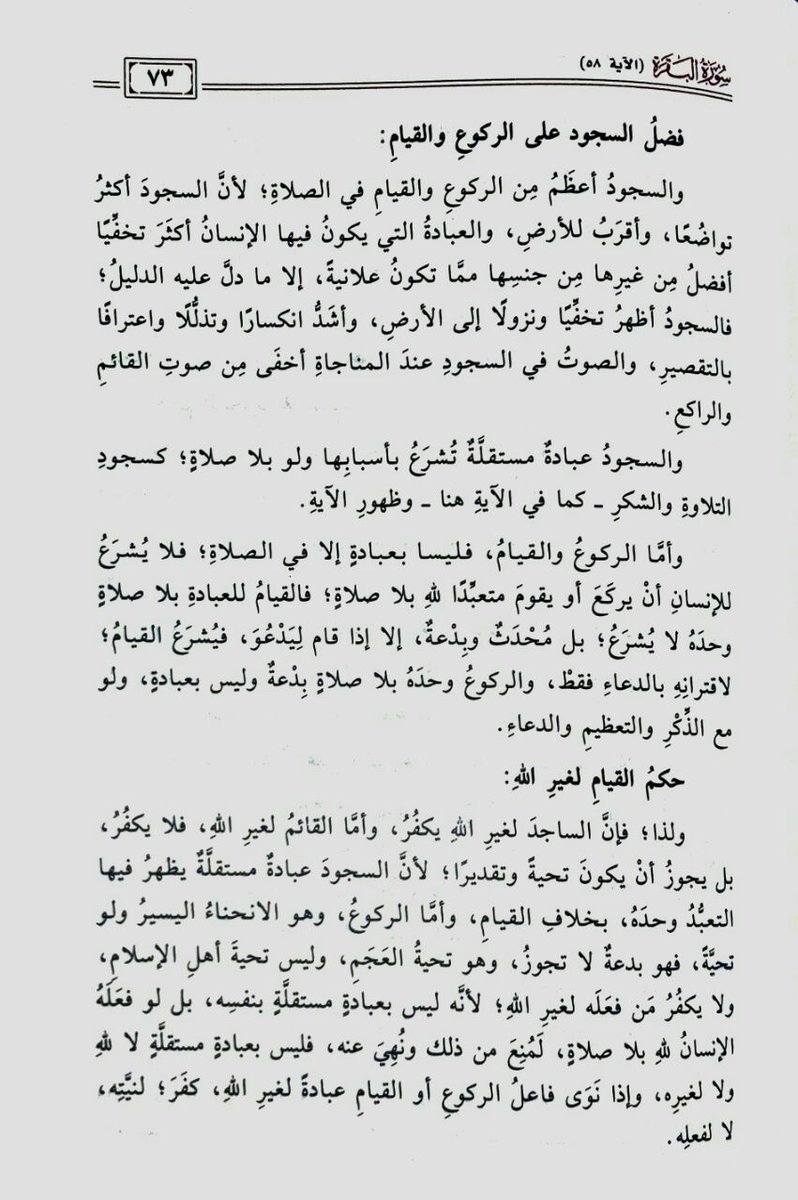 سورة البقرة (الآية ٥٨)
٧٣
فضلُ السجود على الركوعِ والقيامِ:
والسجودُ أعظَمُ مِن الركوعِ والقيامِ في الصلاةِ؛ لأنَّ السجودَ أكثرُ
تواضُعًا، وأقرَبُ للأرضِ، والعبادةُ التي يكونُ فيها الإنسانُ أكثَرَ تخفِّيًا
أفضلُ مِن غيرِها مِن جنسِها ممَّا تكونُ علانيةً، إلا ما دلَّ عليه الدليلُ؛
فالسجودُ أظهرُ تخفِّيًا ونزولًا إلى الأرضِ، وأشَدُّ انكسارًا وتذلُّلًا واعترافًا
بالتقصيرِ، والصوتُ في السجودِ عندَ المناجاةِ أخفَى مِن صوتِ القائمِ
والراكعِ.
والسجودُ عبادةٌ مستقلَّةٌ تُشرَعُ بأسبابِها ولو بلا صلاةٍ؛ كسجودِ
التلاوةِ والشكرِ ـ كما في الآيةِ هنا ـ وظهورِ الآيةِ.
وأمَّا الركوعُ والقيامُ، فليسا بعبادةٍ إلا في الصلاةِ؛ فلا يُشرَعُ
للإنسانِ أنْ يركَعَ أو يقومَ متعبِّدًا للهِ بلا صلاةٍ؛ فالقيامُ للعبادةِ بلا صلاةٍ
وحدَهُ لا يُشرَعُ؛ بل مُحْدَثٌ وبِدْعةٌ، إلا إذا قام لِيَدْعُوَ، فيُشرَعُ القيامُ؛
لاقترانِهِ بالدعاءِ فقطْ، والركوعُ وحدَهُ بلا صلاةٍ بِدْعةٌ وليس بعبادةٍ، ولو
مع الذِّكْرِ والتعظيمِ والدعاءِ.
حكمُ القيامِ لغيرِ اللهِ:
ولذا؛ فإنَّ الساجدَ لغيرِ اللهِ يكفُرُ، وأمَّا القائمُ لغيرِ اللهِ، فلا يكفُرُ،
بل يجوزُ أنْ يكونَ تحيةً وتقديرًا؛ لأنَّ السجودَ عبادةٌ مستقلَّةٌ يظهرُ فيها
التعبُّدُ وحدَهُ، بخلافِ القيامِ، وأمَّا الركوعُ، وهو الانحناءُ اليسيرُ ولو
تحيَّةً، فهو بدعةٌ لا تجوزُ، وهو تحيةُ العَجَمِ، وليس تحيةَ أهلِ الإسلامِ،
ولا يكفُرُ مَن فعَلَه لغيرِ اللهِ؛ لأنَّه ليس بعبادةٍ مستقلَّةٍ بنفسِه، بل لو فعَلَهُ
الإنسانُ للهِ بلا صلاةٍ، لَمُنِعَ من ذلك ونُهِيَ عنه، فليس بعبادةٍ مستقلَّةٍ لا للهِ
ولا لغيرِه، وإذا نَوَى فاعلُ الركوعِ أو القيامِ عبادةً لغيرِ اللهِ، كفَرَ؛ لنيَّتِه،
لا لفعلِه.